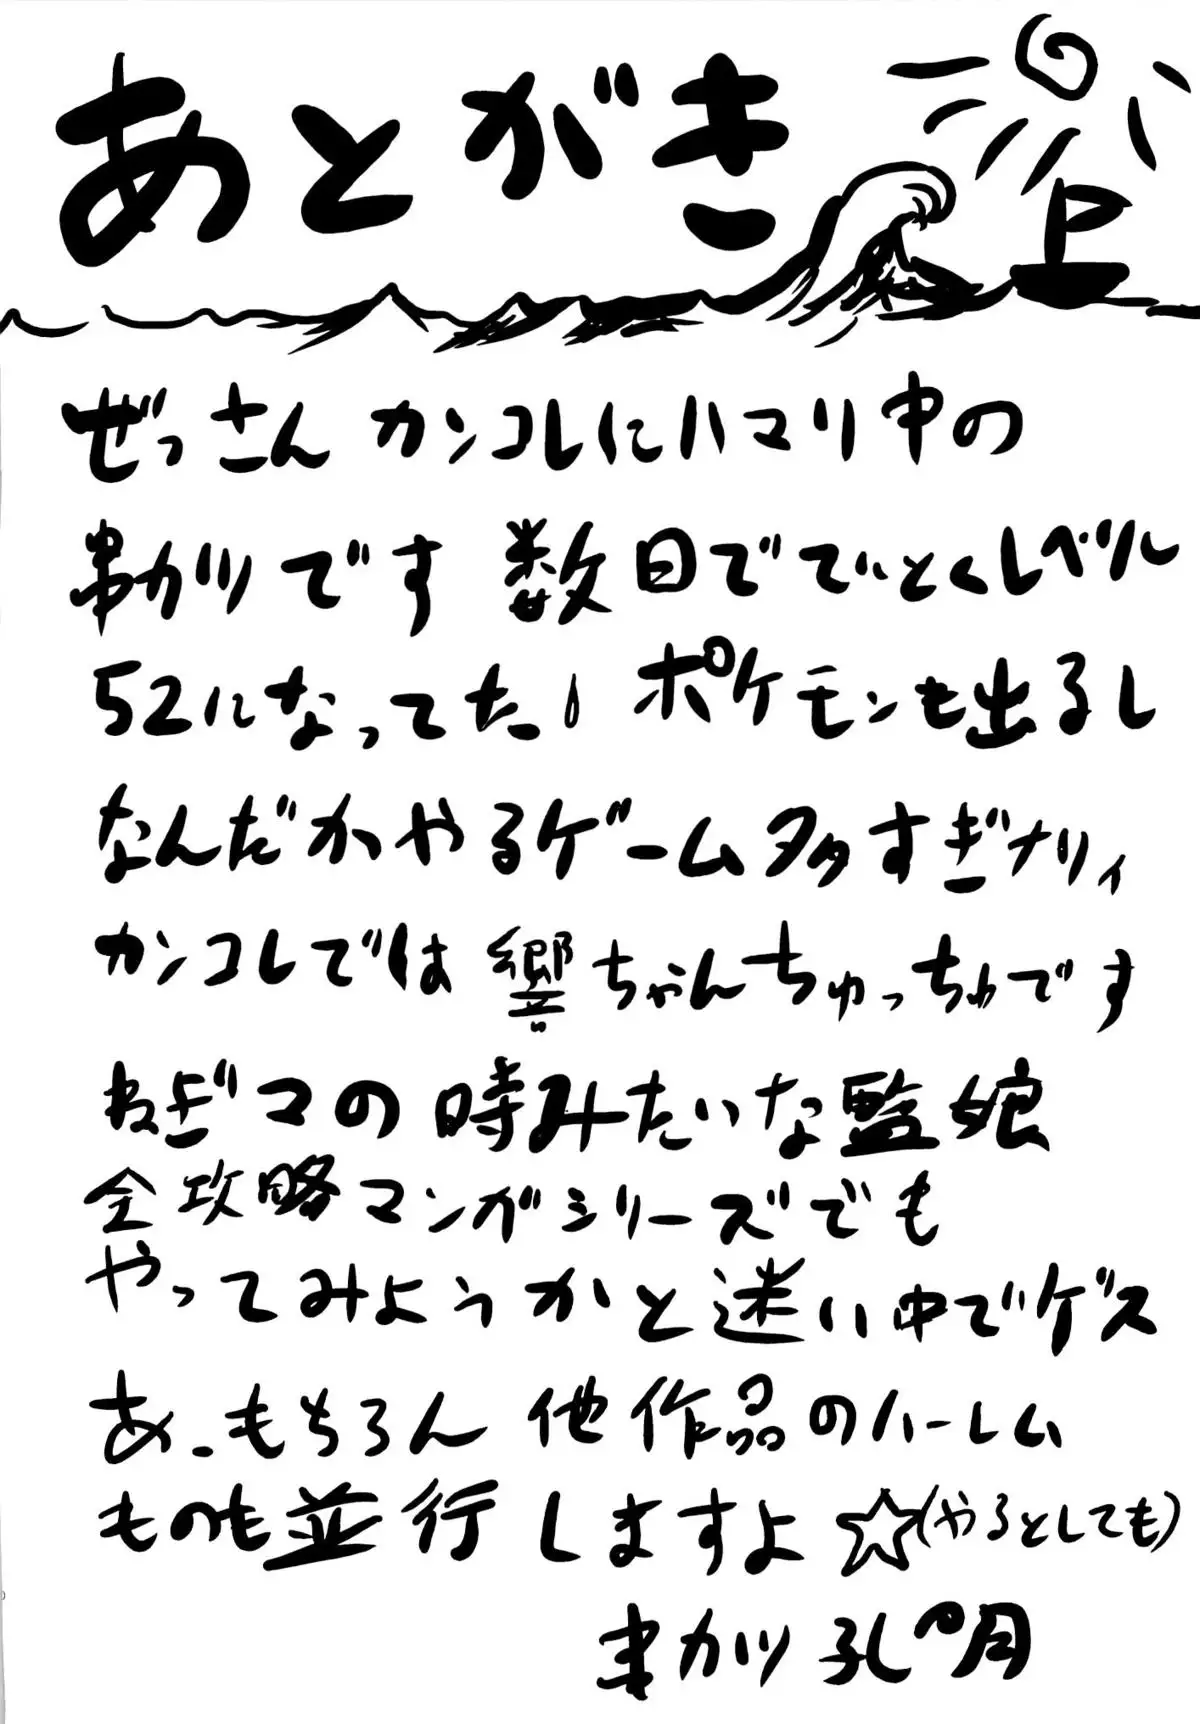 あとがき
ぜっさんカンコレにハマリ中の
串カツです 数日でていとくレベル
52になってた! ポケモンも出るし
なんだかやるゲーム多すぎナリィ
カンコレでは響ちゃんちゅっちゅです
ねぎマの時みたいな艦娘
全攻略マンガシリーズでも
やってみようかと迷い中でゲス
あ、もちろん他作品のハーレム
ものも並行しますよ☆(やるとしても)
串カツ孔明